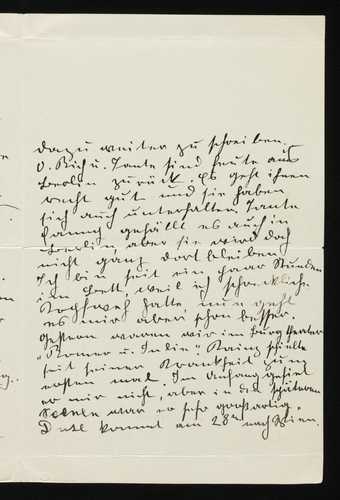 dazu weiter zu schreiben.
O. Rich u. Tante sind heute aus
Berlin zurück. Es geht ihnen
recht gut und sie haben
sich auch unterhalten. Tante
Fanny gefällt es auch in
Berlin, aber sie wird doch
nicht ganz dort bleiben.
Ich bin seit ein paar Stunden
im Bett, weil ich schreckliche
Kopfweh hatte, nun geht
es mir aber schon besser.
Gestern waren wir im Burgtheater
"Romeo u. Julie" Kainz spielte
seit seiner Krankheit zum
ersten mal. Im Anfang gefiel
er mir nicht, aber in den späteren
Scenen war er sehr großartig.
kommt am 28ten nach Wien.